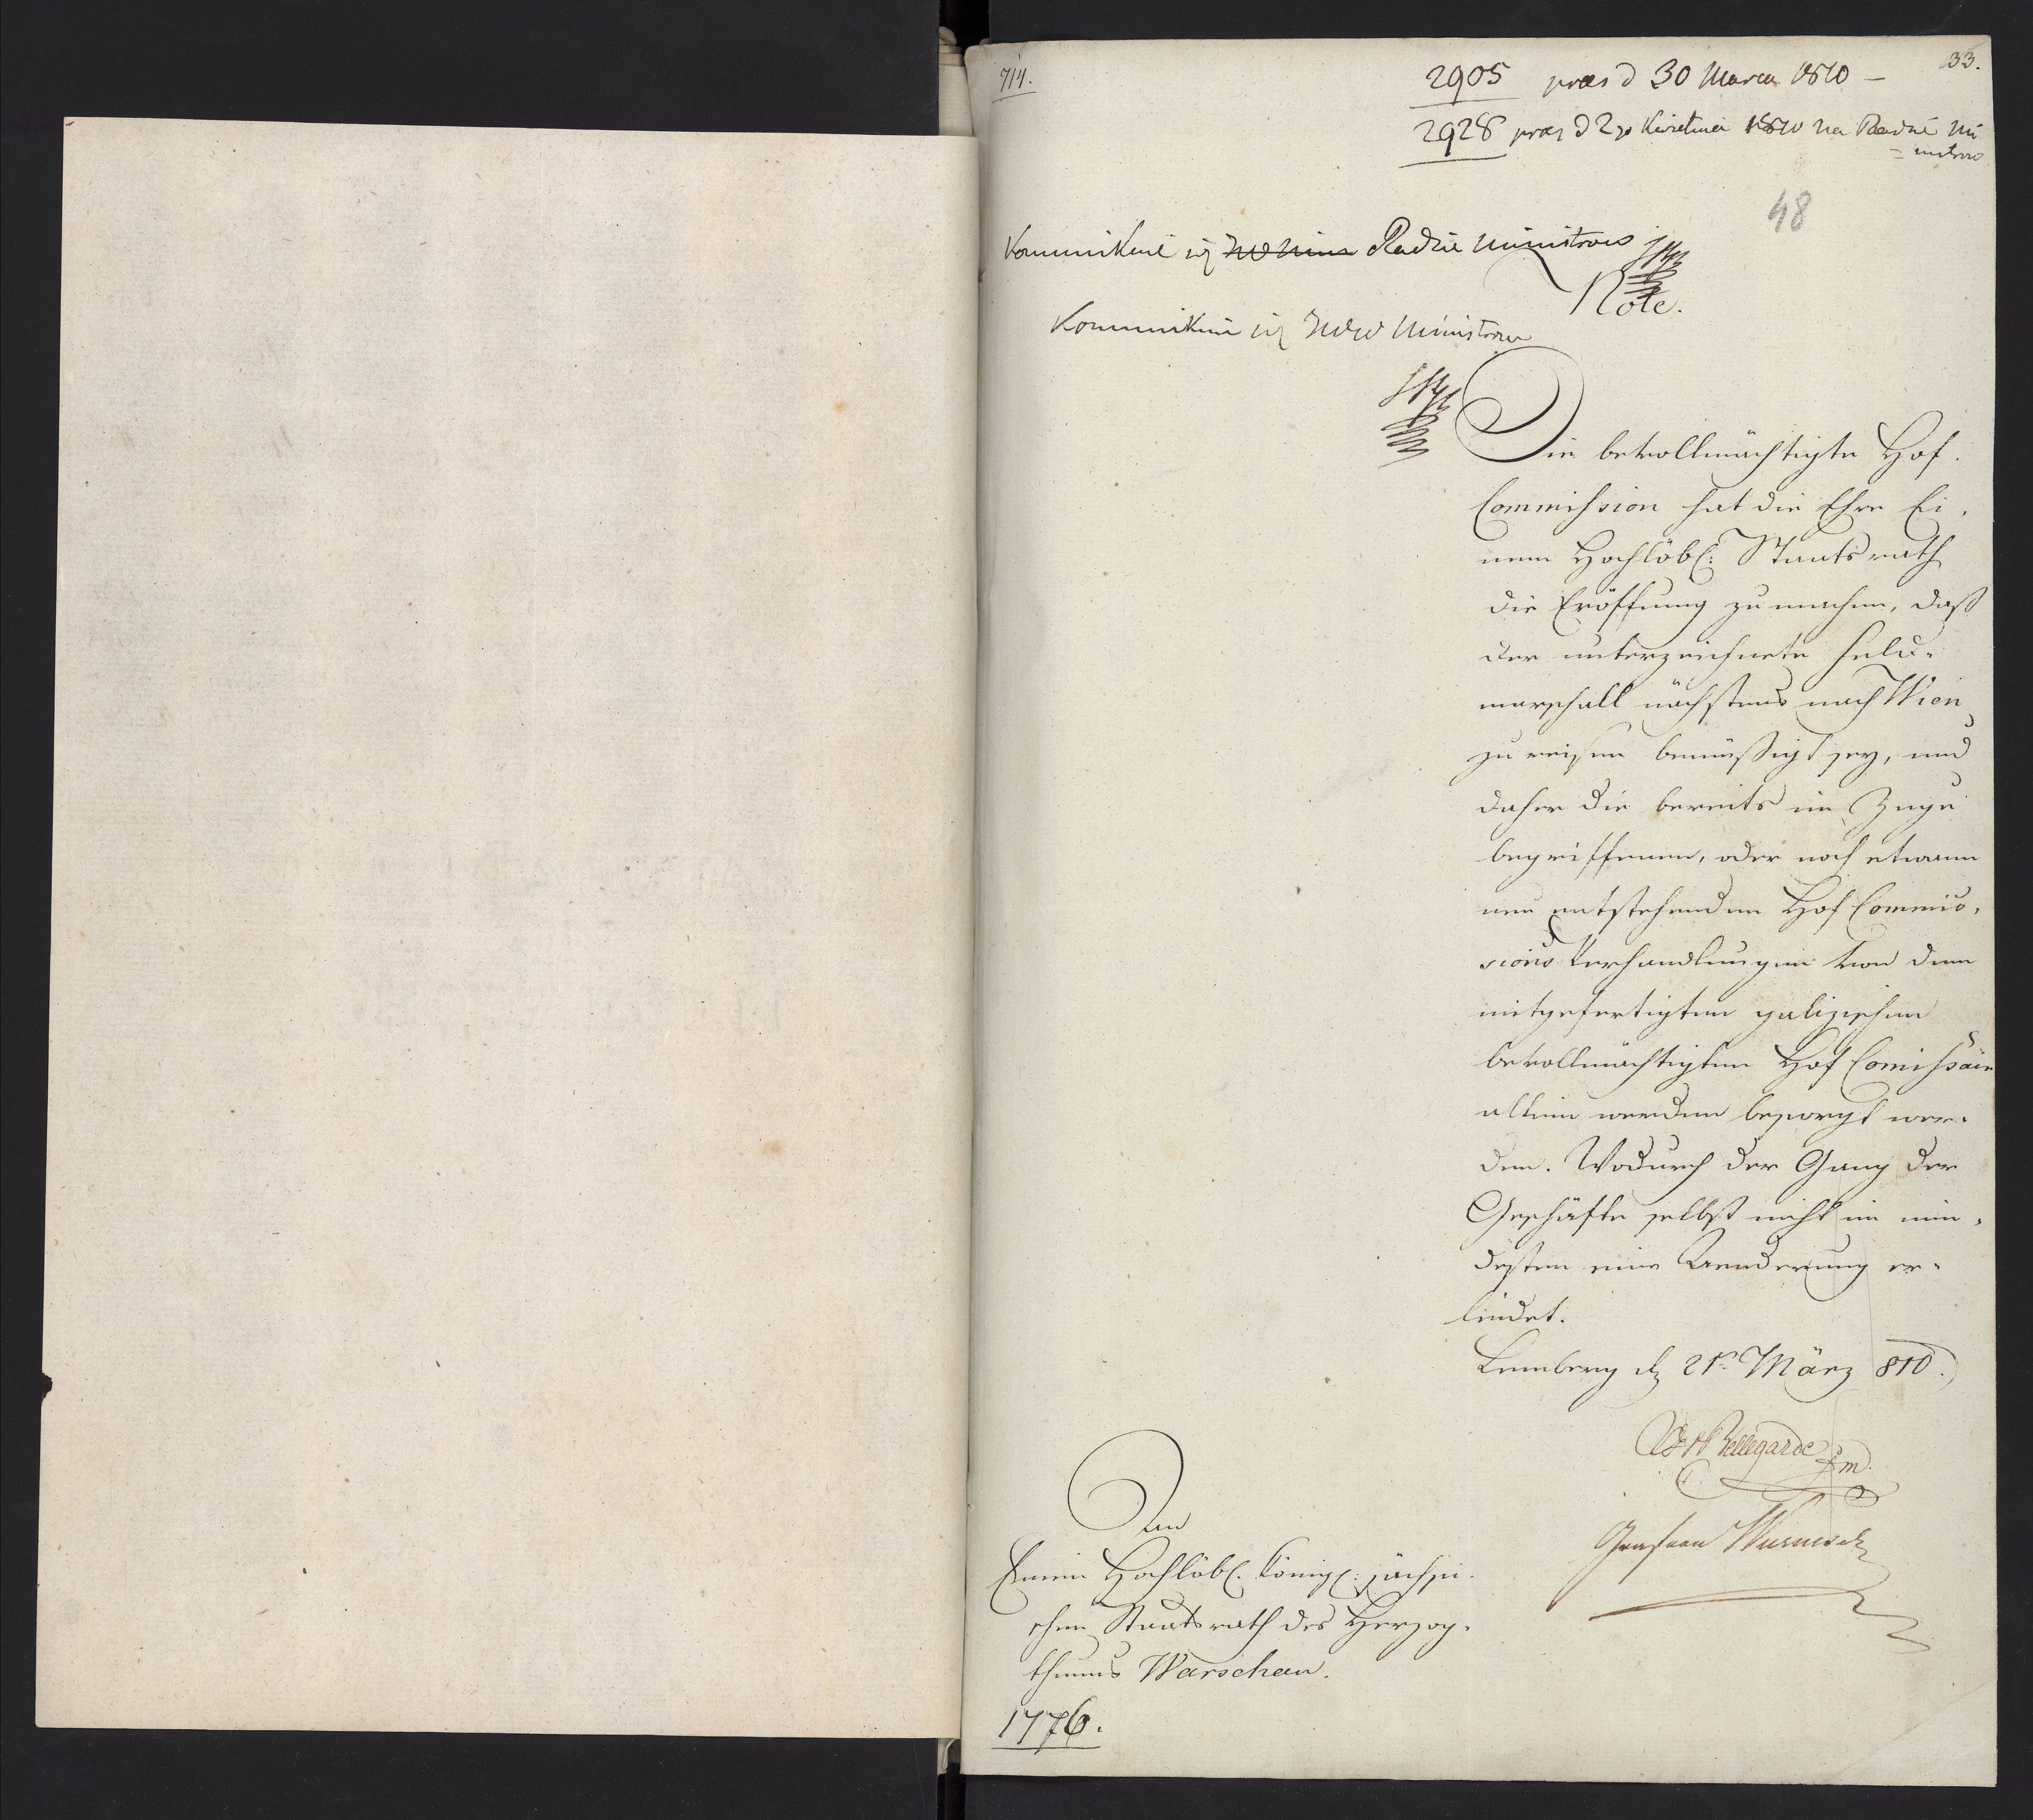 714.
33.
2905 praes d 30 Marca 1810 —
2928 praes d 2go Kwietnia 1810 na Radzie Mi
= nistrow
48
Kommunikuie się Radzie Ministrow
Note.
Kommunikuie się Ministrow
Die bevollmächtigte Hof-
Commission hat die Ehre Ei-
nem Hochlöbl: Staatsrath
die Eröffnung zu machen, daß
der unterzeichnete Feld-
marschall nächstens nach Wien
zu reisen bemüßigt sey, und
daher die bereits im Zuge
begriffenen, oder noch etwann
neu entstehenden Hof Commis-
sions Verhandlungen von dem
mitgefertigten galizischen
bevollmächtigten Hof Comissär
allein werden besorgt wer-
den. Wodurch der Gang der
Geschäfte selbst nicht im min-
desten eine Aenderung er-
leidet.
Lemberg den 21n März 810.
Bellegarde FM.
Graf von Wurmser
An
Einen Hochlöbl. Königl: sächsi-
schen Staatsrath des Herzog-
thums Warschau.
1776.